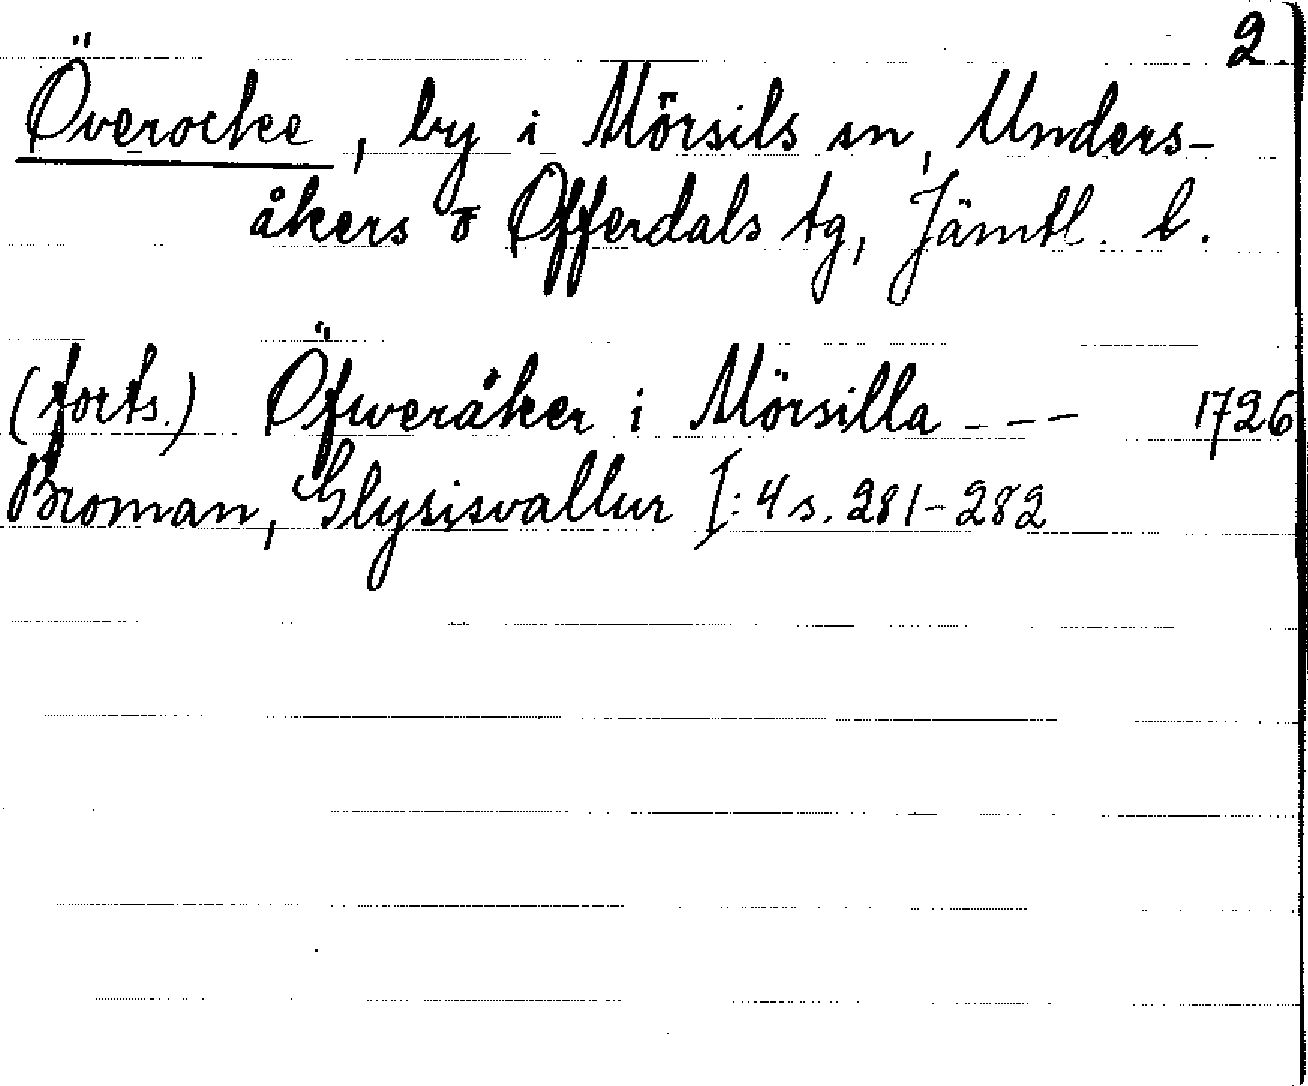 2.
Överocke, by i Mörsils sn, Unders-
åkers o Offerdals tg, Jämtl. l.
(forts.) Öfweråker i Mörsilla --- 1726
Broman, Glysisvallur I:4 s. 281-282